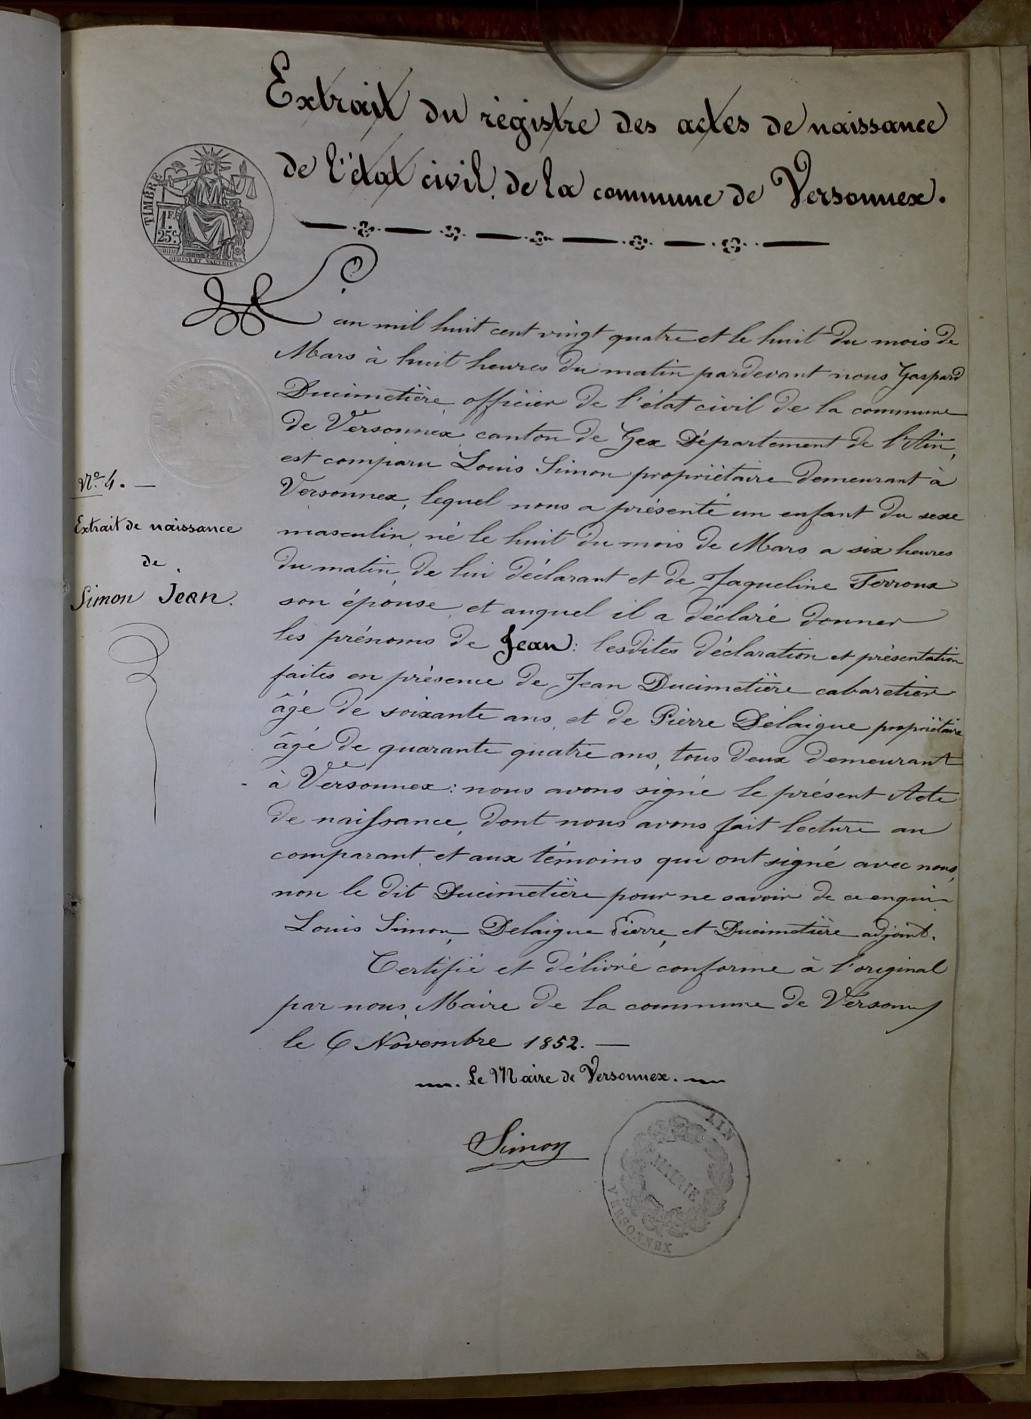 Extrait du régistre des actes de naissance
de l'état civil de la commune de Versonnex.
TIMBRE
1 F.
25 c.
L'an mil huit cent vingt quatre et le huit du mois de
Mars à huit heures du matin pardevant nous Gaspard
Ducimetière, officier de l'état civil de la commune
de Versonnex, canton de Gex Département de l'Ain,
est comparu Louis Simon propriétaire demeurant à
Versonnex, lequel nous a présenté un enfant du sexe
masculin, né le huit du mois de Mars a six heures
du matin, de lui déclarant et de Jaqueline Ferroux
son épouse, et auquel il a déclaré donner
les prénoms de Jean: lesdites déclaration et présentation
faites en présence de Jean Ducimetière cabaretier
âgé de soixante ans, et de Pierre Délaigue propriétaire
âgé de quarante quatre ans, tous deux demeurant
à Versonnex: nous avons signé le présent Acte
de naissance, dont nous avons fait lecture au
comparant et aux témoins qui ont signé avec nous,
non le dit Ducimetière pour ne savoir de ce enquis.
Louis Simon, Delaigue Pierre, et Ducimetière adjoint.
Certifié et délivré conforme à l'original
par nous, Maire de la commune de Versonnex
le 6 Novembre 1852.
Le Maire de Versonnex.
Simon
AIN
MAIRIE
VERSONNEX
N° 4.
Extrait de naissance
de
Simon Jean.